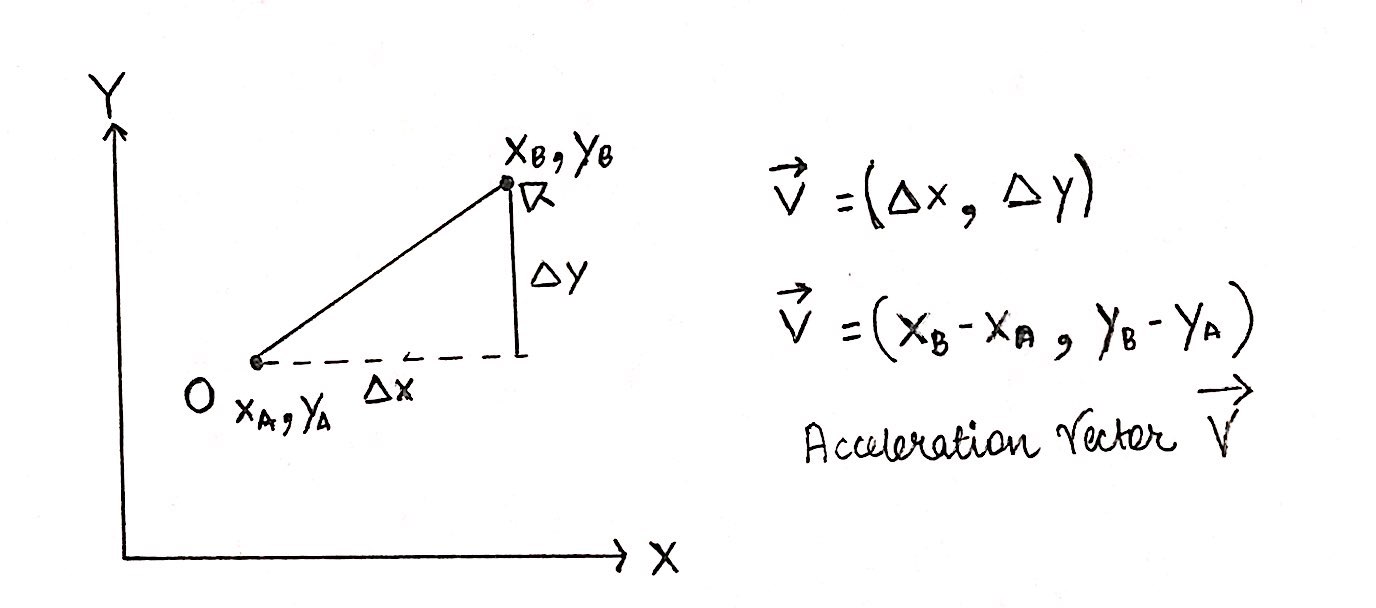 Y
X_B, Y_B
ΔY
O X_A, Y_A ΔX
X
V⃗ = (ΔX, ΔY)
V⃗ = (X_B - X_A, Y_B - Y_A)
Acceleration Vector V⃗